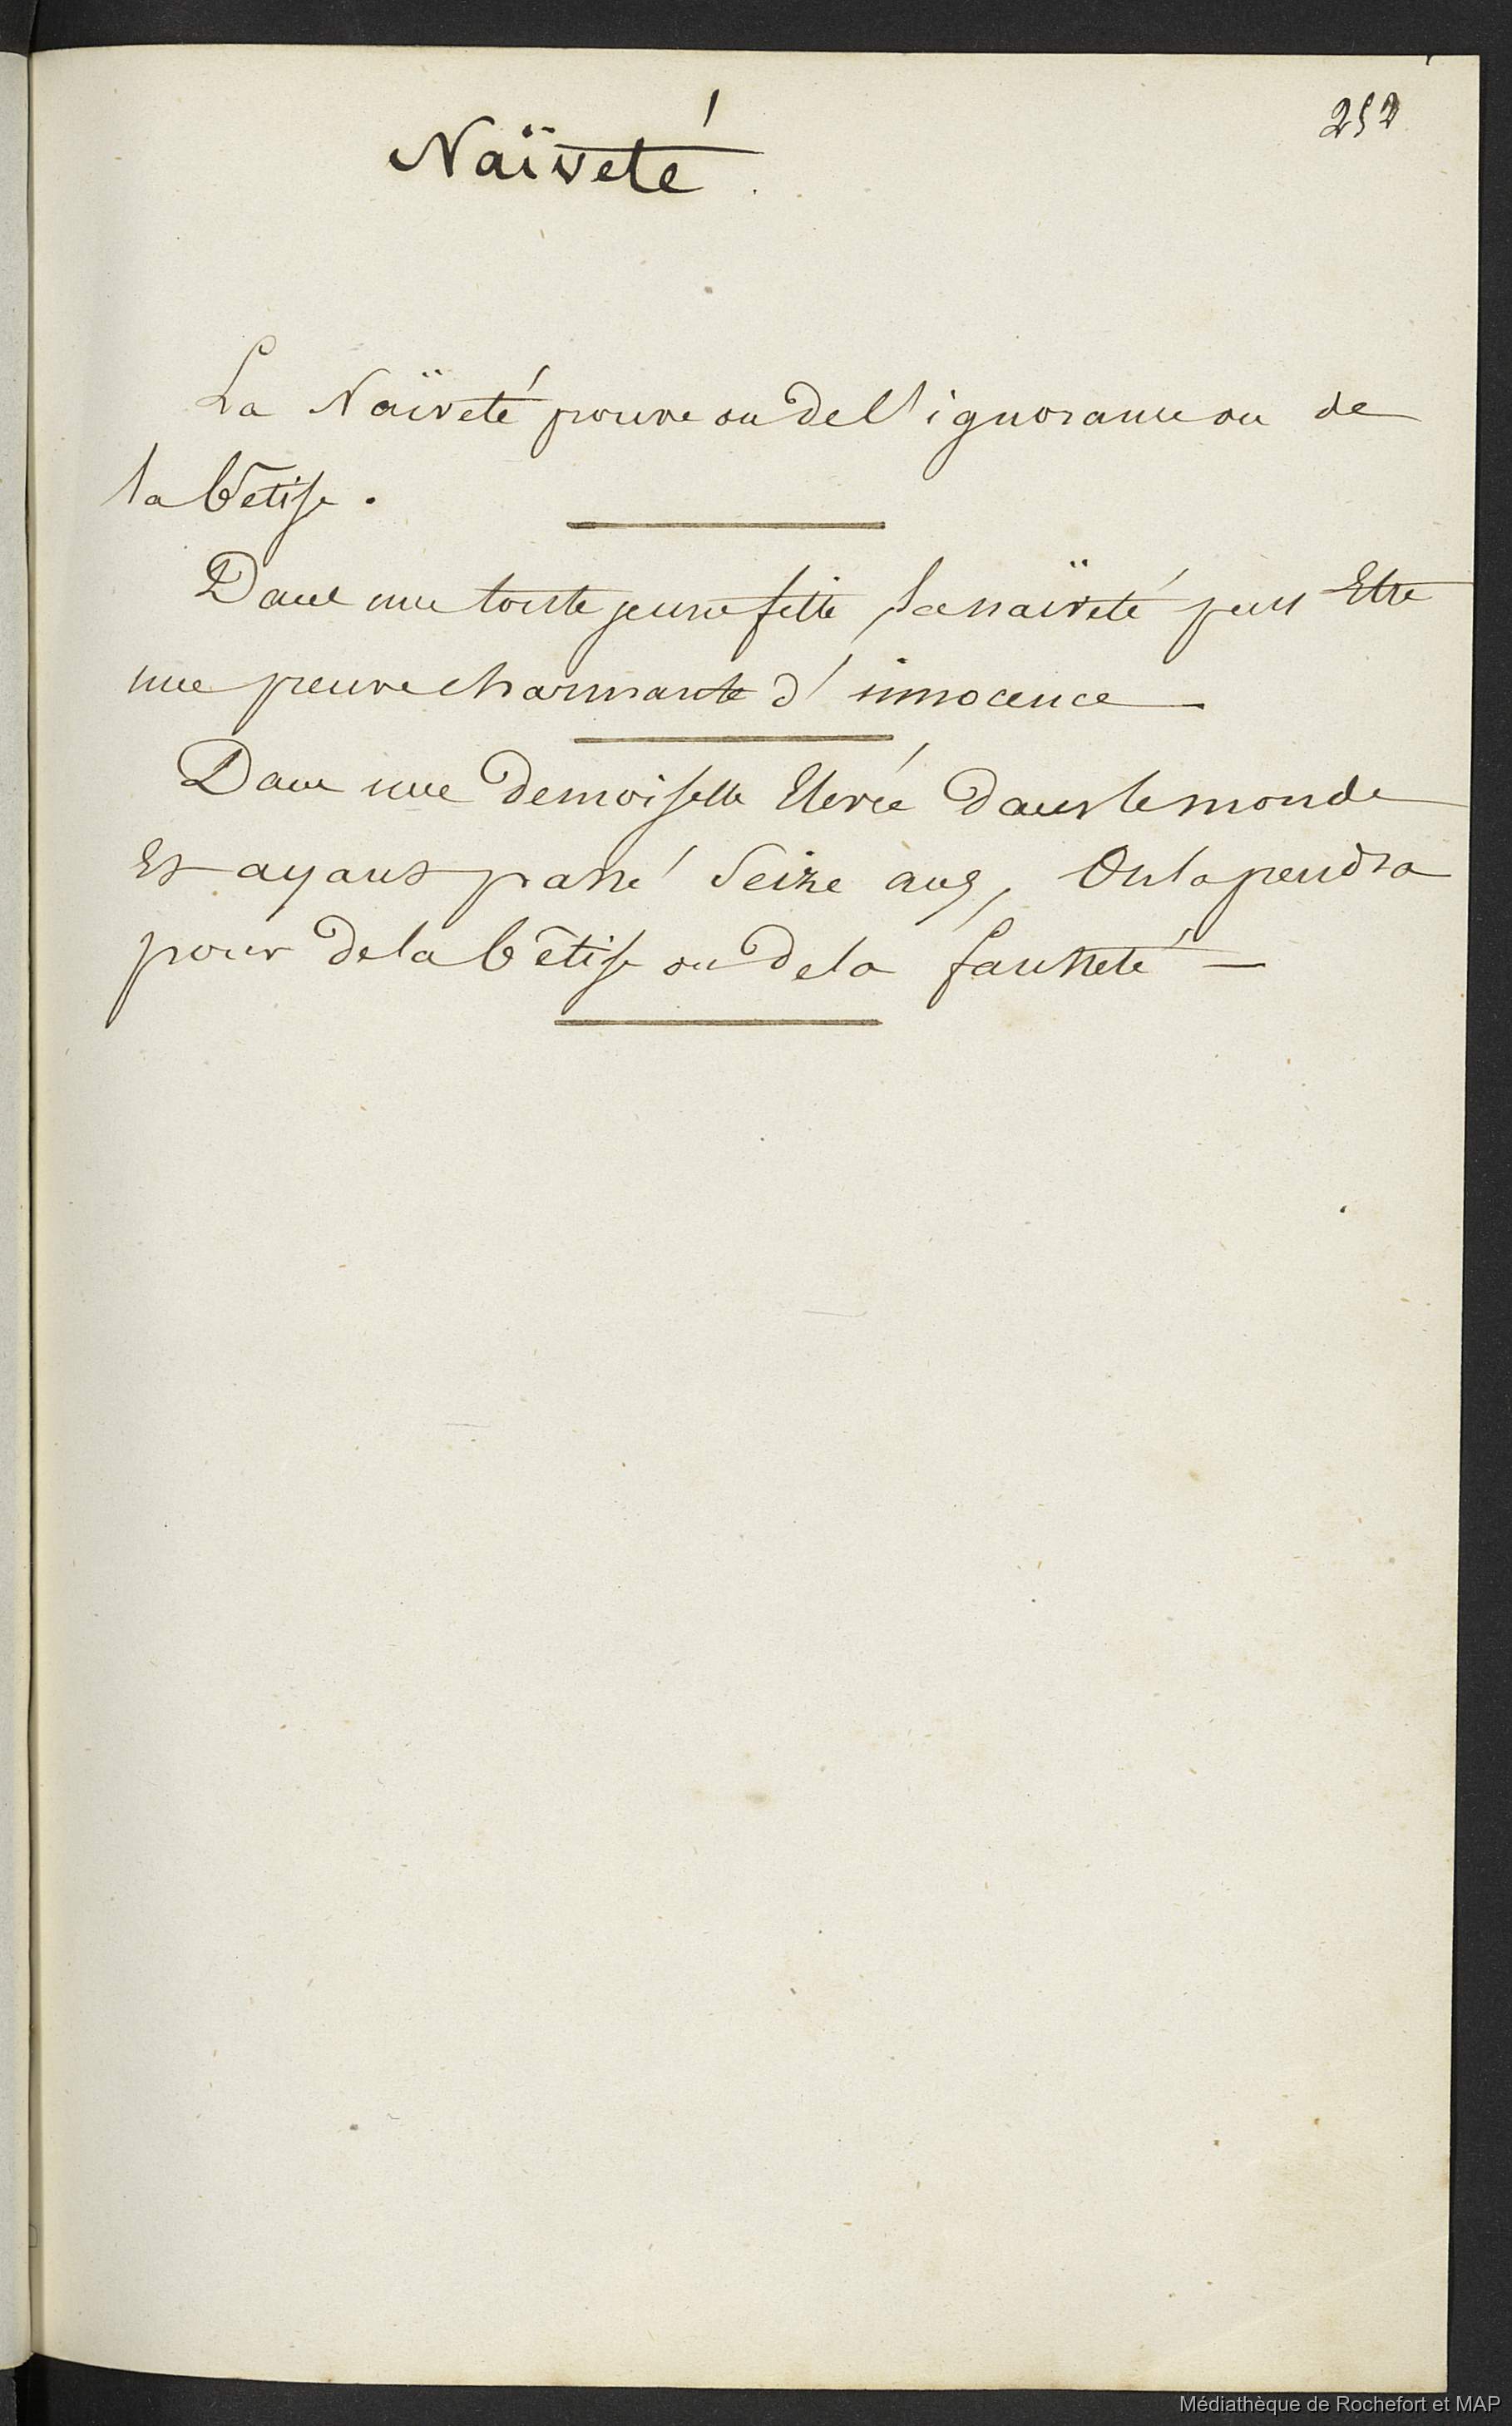 252
Naïveté.
La Naïveté prouve ou de l'ignorance ou de
la bêtise.
Dans une toute jeune fille, la naïveté peut Etre
une preuve charmante d'innocence
Dans une demoiselle Elevée dans le monde
Et ayant passé Seize ans, On la prendra
pour de la bêtise ou de la fausseté —
Médiathèque de Rochefort et MAP